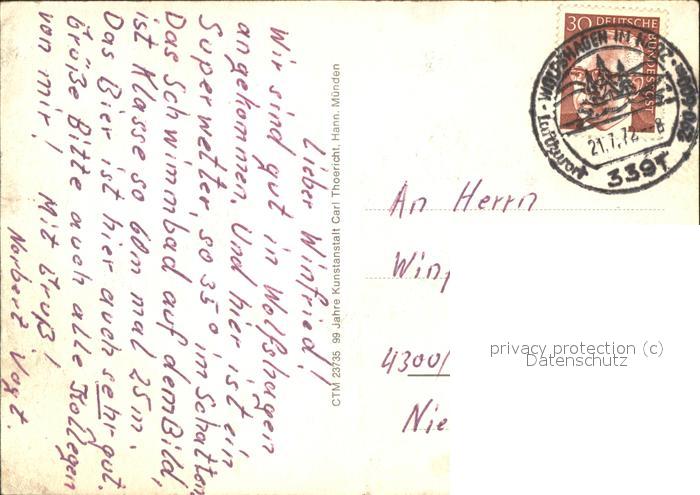 Lieber Winfried!
Wir sind gut in Wolfshagen
angekommen. Und hier ist ein
Superwetter, so 35° im Schatten.
Das Schwimmbad auf dem Bild,
ist Klasse so 60m mal 25m.
Das Bier ist hier auch sehr gut.
Grüße Bitte auch alle Kollegen
von mir! Mit Gruß!
Norbert Vogt.
CTM 23735 99 Jahre Kunstanstalt Carl Thoericht, Hann. Münden
30 DEUTSCHE
BUNDESPOST
WOLFSHAGEN IM HARZ
Luftkurort
21.7.72
339T
An Herrn
Win
4300/
Nie
privacy protection (c)
Datenschutz